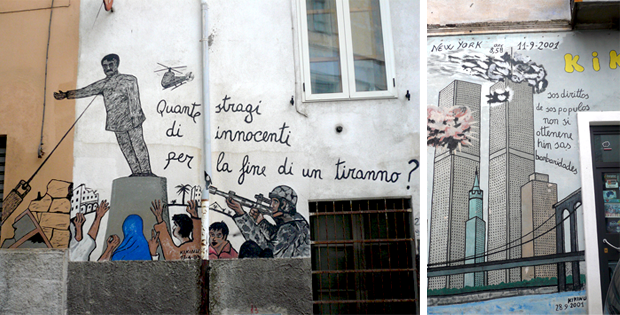 Quante stragi
di innocenti
per la fine di un tiranno?
NEW YORK ORE 8,58 11-9-2001
KIK
sos dirittos
de sos populos
non si
ottenene
hin sas
barbaridades
KIKINU
28.9.2001